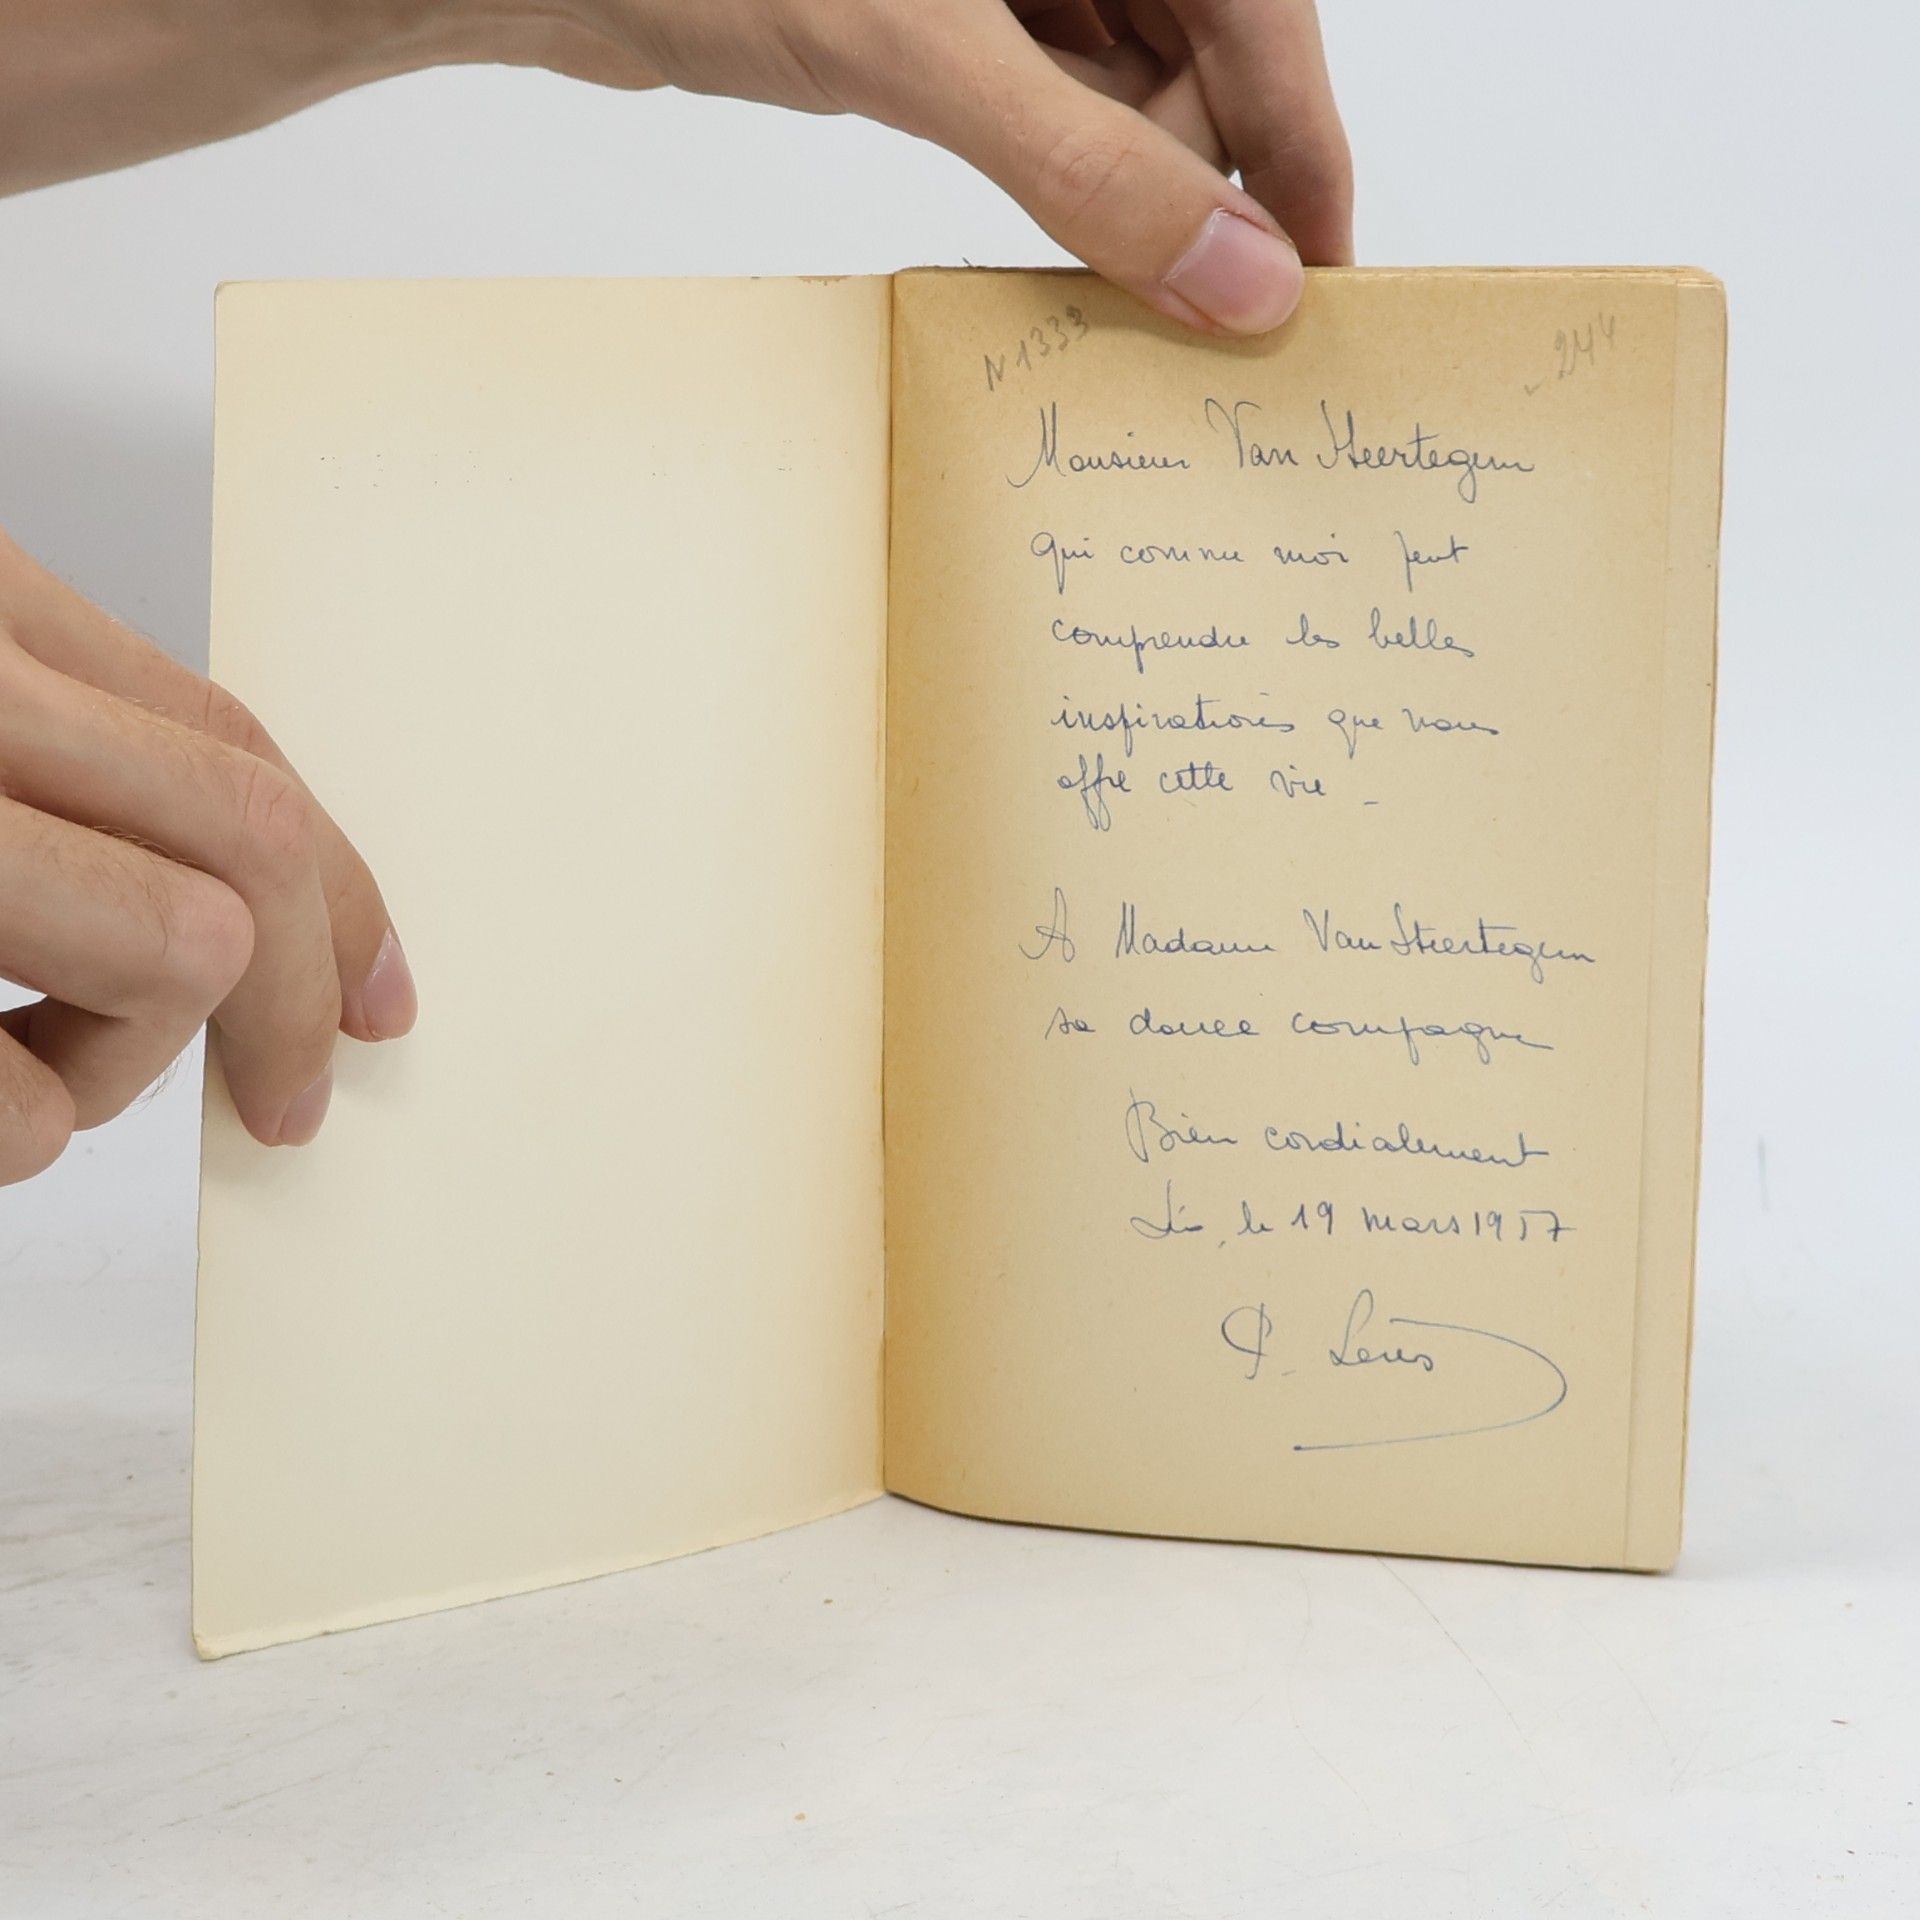 N 1333
244
Monsieur Van Heertegem
qui comme moi peut
comprendre les belles
inspirations que nous
offre cette vie -
A Madame Van Heertegem
sa douce compagne
Bien cordialement
le 19 mars 1957